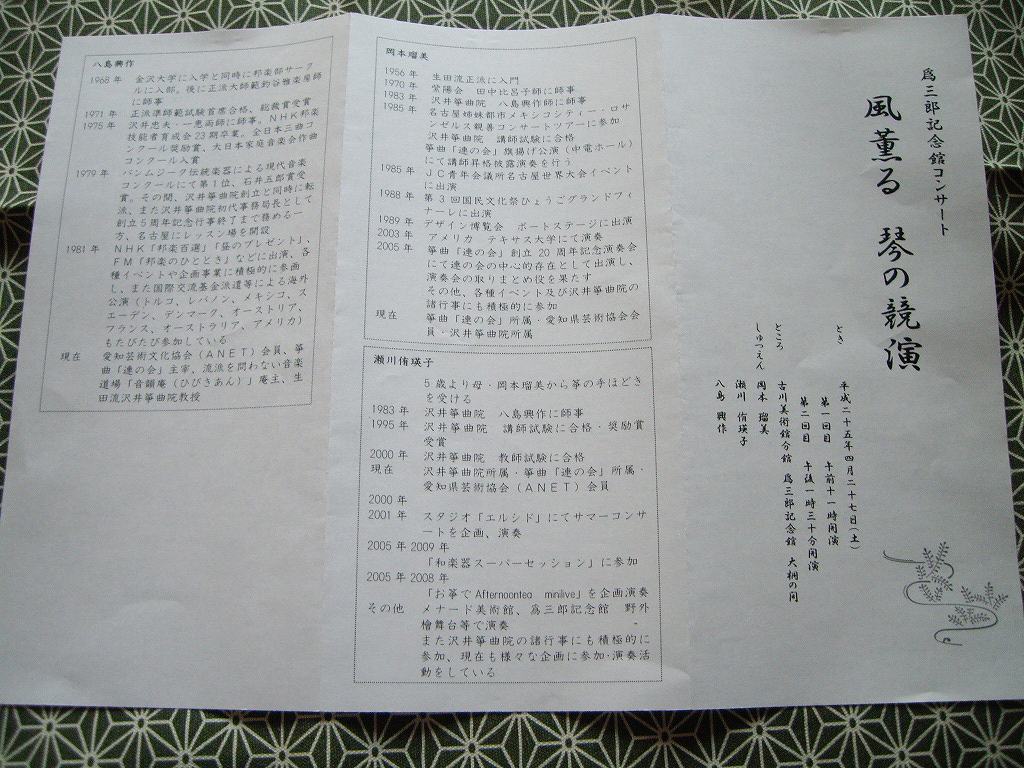 為三郎記念館コンサート
風薫る 琴の競演
とき 平成二十五年四月二十七日（土）
第一回目 午前十一時開演
第二回目 午後一時三十分開演
ところ 古川美術館分館 為三郎記念館 大桐の間
しゅつえん 岡本 瑠美
瀬川 侑瑛子
八島 興作
岡本瑠美
1956年 生田流正派に入門
1970年 紫陽会 田中比呂子師に師事
1983年 沢井箏曲院 八島興作師に師事
1985年 名古屋姉妹都市メキシコシティー・ロサ
ンゼルス親善コンサートツアーに参加
沢井箏曲院 講師試験に合格
箏曲「連の会」旗揚げ公演（中電ホール）
にて講師昇格披露演奏を行う
1985年 ＪＣ青年会議所名古屋世界大会イベント
に出演
1988年 第３回国民文化祭ひょうごグランドフィ
ナーレに出演
1989年 デザイン博覧会 ポートステージに出演
2003年 アメリカ テキサス大学にて演奏
2005年 箏曲「連の会」創立20周年記念演奏会
にて連の会の中心的存在として出演し、
演奏会の取りまとめ役を果たす
その他、各種イベント及び沢井箏曲院の
諸行事にも積極的に参加
現在 箏曲「連の会」所属・愛知県芸術協会会
員・沢井箏曲院所属
瀬川侑瑛子
５歳より母・岡本瑠美から箏の手ほどき
を受ける
1983年 沢井箏曲院 八島興作に師事
1995年 沢井箏曲院 講師試験に合格・奨励賞
受賞
2000年 沢井箏曲院 教師試験に合格
現在 沢井箏曲院所属・箏曲「連の会」所属・
愛知県芸術協会（ＡＮＥＴ）会員
2000年
2001年 スタジオ「エルシド」にてサマーコンサ
ートを企画、演奏
2005年2009年
「和楽器スーパーセッション」に参加
2005年2008年
「お箏でAfternoontea minilive」を企画演奏
その他 メナード美術館、為三郎記念館 野外
檜舞台等で演奏
また沢井箏曲院の諸行事にも積極的に
参加、現在も様々な企画に参加・演奏活
動をしている
八島興作
1968年 金沢大学に入学と同時に邦楽部サーク
ルに入部。後に正派大師範釣谷雅楽房師
に師事
1971年 正派準師範試験首席合格、総裁賞受賞
1975年 沢井忠夫・一恵両師に師事。ＮＨＫ邦楽
技能者育成会23期卒業。全日本三曲コ
ンクール奨励賞、大日本家庭音楽会作曲
コンクール入賞
1979年 パンムジーク伝統楽器による現代音楽
コンクールにて第１位、石井五郎賞受
賞。その間、沢井箏曲院創立と同時に転
派、また沢井箏曲院初代事務局長として
創立５周年記念行事終了まで務める一
方、名古屋にレッスン場を開設
1981年 ＮＨＫ「邦楽百選」「昼のプレゼント」、
ＦＭ「邦楽のひととき」などに出演、各
種イベントや企画事業に積極的に参画
し、また国際交流基金派遣等による海外
公演（トルコ、レバノン、メキシコ、ス
エーデン、デンマーク、オーストリア、
フランス、オーストラリア、アメリカ）
もたびたび参加している
現在 愛知芸術文化協会（ＡＮＥＴ）会員、箏
曲「連の会」主宰、流派を問わない音楽
道場「音韻庵（ひびきあん）」庵主、生
田流沢井箏曲院教授